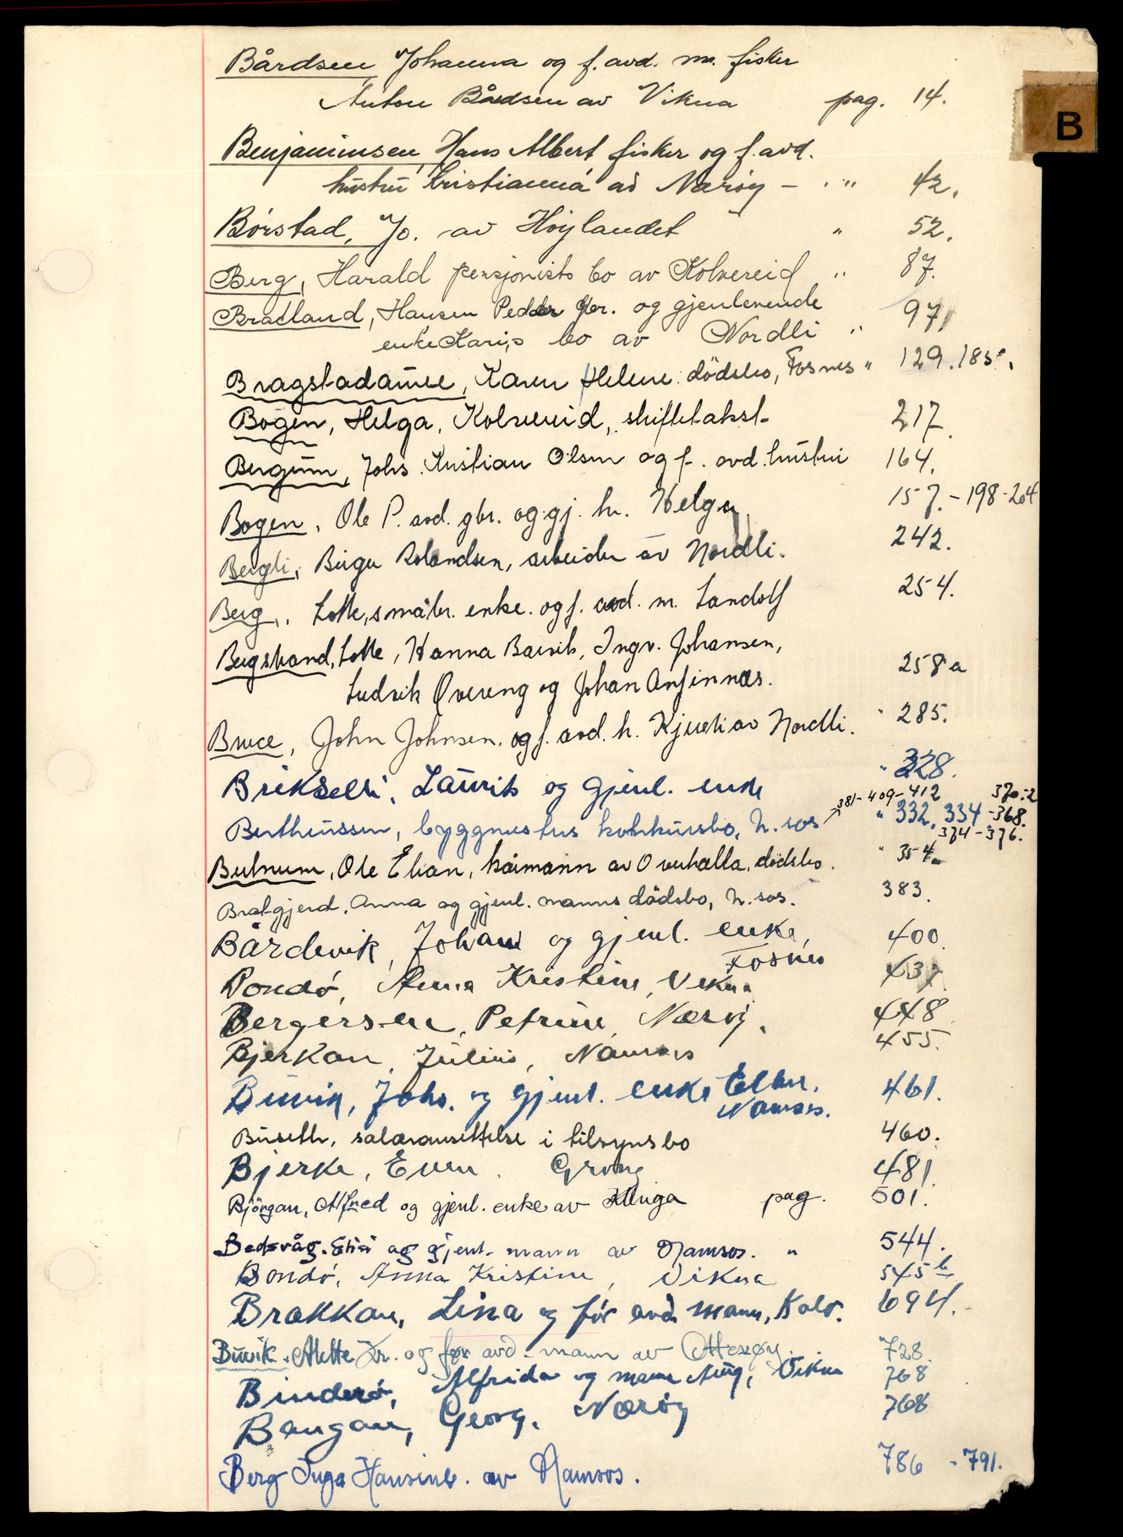 Bårdsen Johanna og f. avd. m. fisker
Anton Bårdsen av Vikna pag. 14.
B
Benjaminsen, Hans Albert fisker og f. avd.
hustru Kristianna av Nærøy - " 42.
Børstad, Jo. av Høylandet " 52.
Berg, Harald pensjonists bo av Kolvereid " 87.
Bratland, Hansen Peder gbr. og gjenlevende
enke Karis bo av Nordli " 97
Bragstadaunee, Karen Helene dödsbo, Fosnes " 129. 185.
Bogen, Helga, Kolvereid, skiftetakst 217.
Bergum, Johs. Kristian Olsen og f. avd. hustru 164.
Bogen, Ole P. avd. gbr. og gj. h. Helga. 157. - 198 - 204
Bergli, Birger Rolandsen, arbeider av Nordli. 242.
Berg, Lotte, småbr. enke. og f. avd. m. Landolf 254.
Bergstrand, Lotte, Hanna Barvik, Ingv. Johansen,
Ludvik Overeng og Johan Anfinnæs. 258a
Bruce, John Johnsen, og f. avd. h. Kjersti av Nordli. " 285.
Brikselli, Laurits og gjenl. enke " 328.
381-409-412 370-2
Berthinssen, byggmesters konkursbo, N.sos " 332, 334 - 368.
374-376.
Butnum, Ole Elian, kårmann av Overhalla, dödsbo. " 354.
Bratgjerd, Anna og gjenl. manns dödsbo, N.sos. 383.
Bårdevik, Johan og gjenl. enke, 400
Fosnes
Bondø, Anna Kristine, Vikna 437
Bergersen, Petrine, Nærøy. 448
Bjerkan, Julius, Namsos 455.
Buvik, Johs. og gjenl. enke Ellen, 461.
Namsos.
Buseth, salæransettelse i tilsynsbo 460.
Bjerke, Even. Grong 481.
Bjørgan, Alfred og gjenl. enke av Klinga pag. 501.
Bedsvåg. Elise og gjenl. mann av Namsos. " 544.
Bondø, Anna Kristine, Vikna 545 b
Brakkan, Lina og før avd. mann, Kolv. 694.
Buvik, Alette Kr. og før avd. mann av Otterøy. 728.
Binderø, Alfrida og mann Aug, Vikna 768
Baugan, Georg. Nærøy 768
Berg Inga Hansine. av Namsos. 786 - 791.